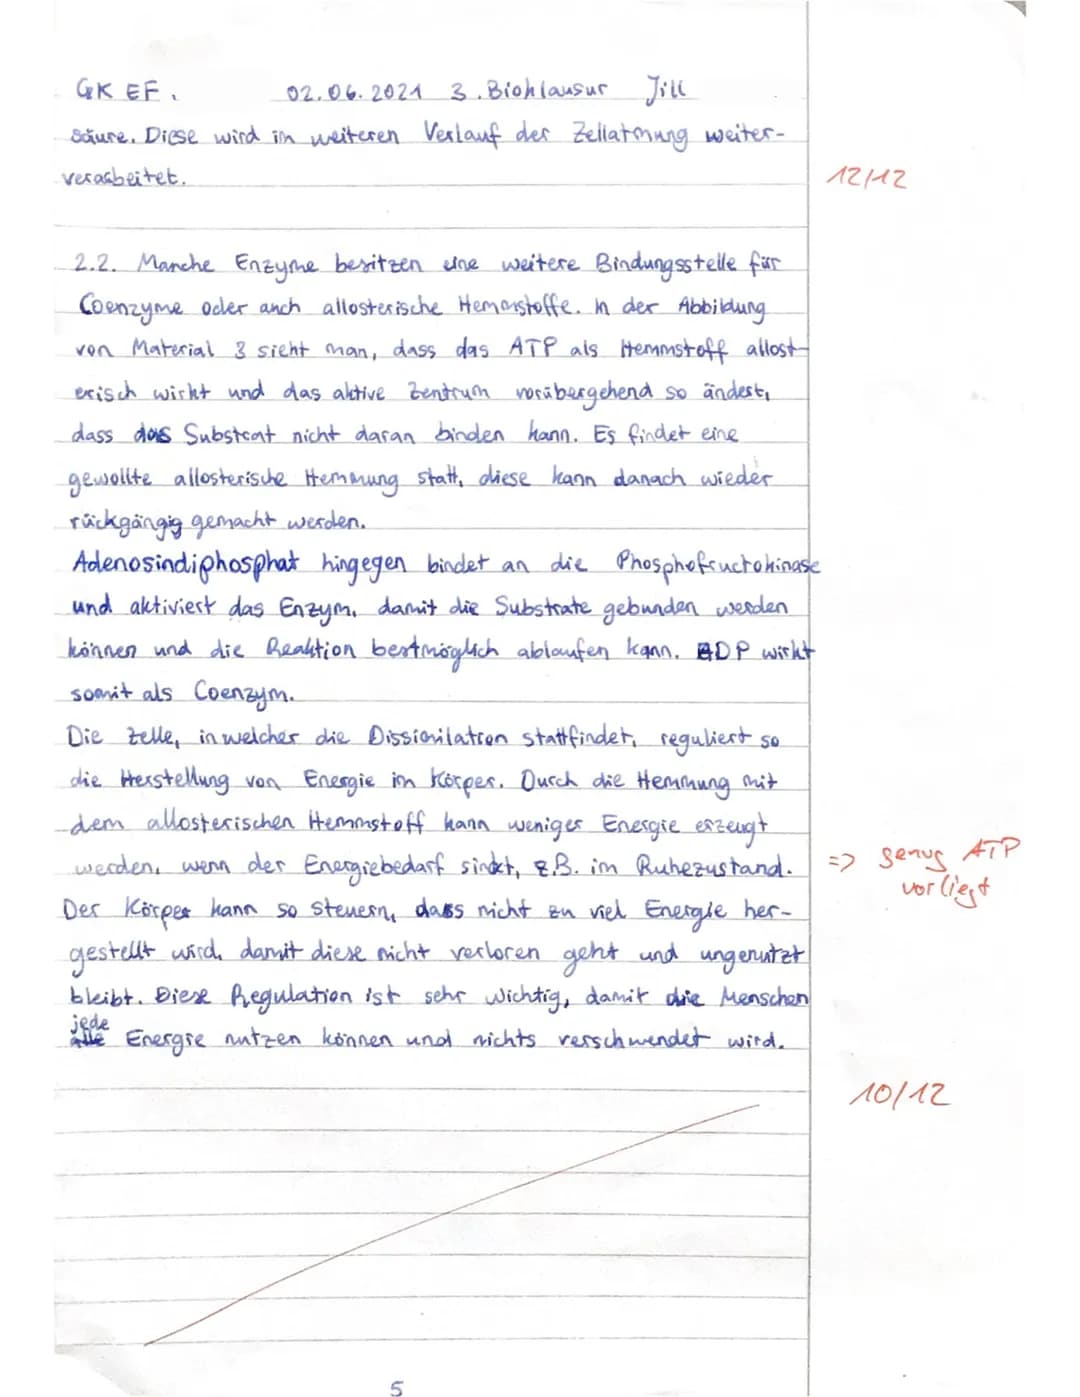 GK EF. 02.06.2021 3. Bioklausur Jill
säure. Diese wird im weiteren Verlauf der Zellatmung weiter-
verarbeitet.
12/12
2.2. Manche Enzyme besitzen eine weitere Bindungsstelle für
Coenzyme oder auch allosterische Hemmstoffe. In der Abbildung
von Material 3 sieht man, dass das ATP als Hemmstoff allost-
erisch wirkt und das aktive Zentrum vorübergehend so ändert,
dass das Substrat nicht daran binden kann. Es findet eine
gewollte allosterische Hemmung statt, diese kann danach wieder
rückgängig gemacht werden.
Adenosindiphosphat hingegen bindet an die Phosphofructokinase
und aktiviert das Enzym, damit die Substrate gebunden werden
können und die Reaktion bestmöglich ablaufen kann. ADP wirkt
somit als Coenzym.
Die Zelle, in welcher die Dissimilation stattfindet, reguliert so
die Herstellung von Energie im Körper. Durch die Hemmung mit
dem allosterischen Hemmstoff kann weniger Energie erzeugt
werden, wenn der Energiebedarf sinkt, z.B. im Ruhezustand.
=> genug ATP
vorliegt
Der Körper kann so steuern, dass nicht zu viel Energie her-
gestellt wird, damit diese nicht verloren geht und ungenutzt
bleibt. Diese Regulation ist sehr wichtig, damit die Menschen
jede
alle Energie nutzen können und nichts verschwendet wird.
10/12
5